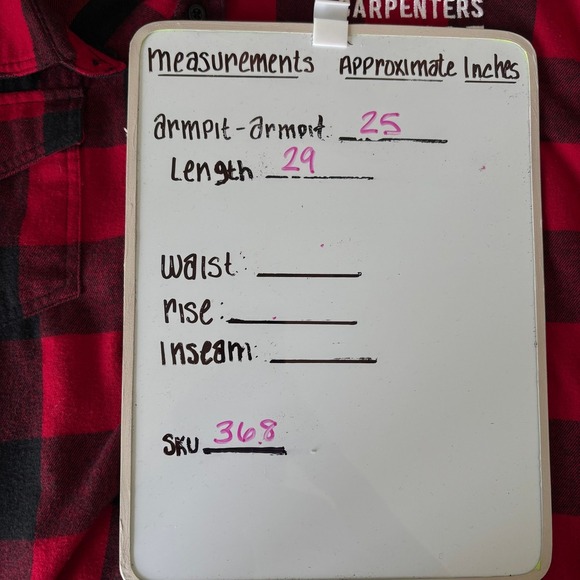 CARPENTERS
measurements Approximate Inches
armpit-armpit: 25
Length 29
waist:
rise:
Inseam:
SKU 368